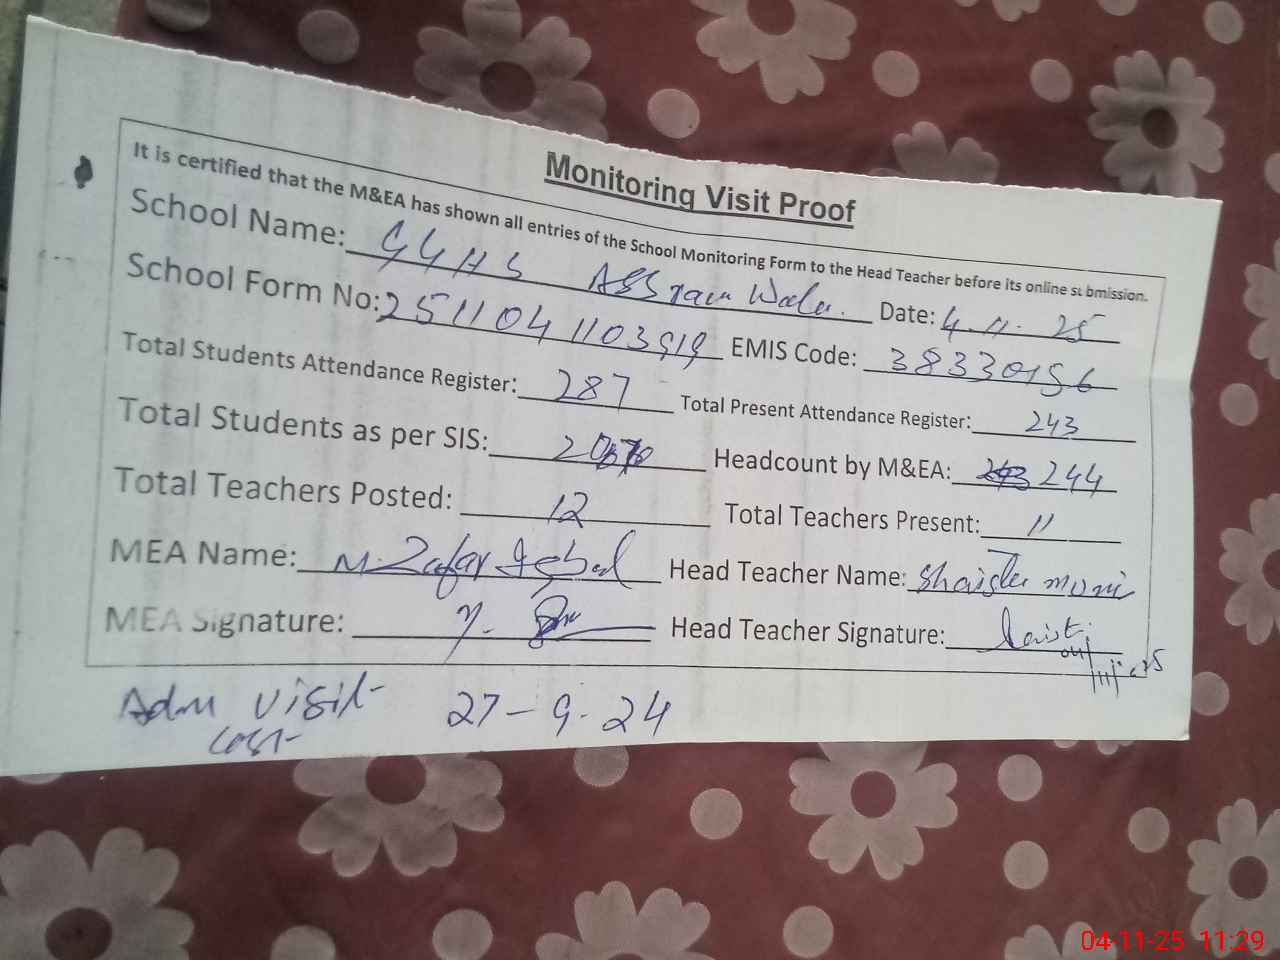 Monitoring Visit Proof
It is certified that the M&EA has shown all entries of the School Monitoring Form to the Head Teacher before its online submission.
School Name: GGHS Wala. Date: 4.11.25
School Form No: 2511041103919 EMIS Code: 38330156
Total Students Attendance Register: 287 Total Present Attendance Register: 243
Total Students as per SIS: Headcount by M&EA: 244
Total Teachers Posted: 12 Total Teachers Present: 11
MEA Name: M. Zafar Iqbal Head Teacher Name: Shaista
MEA Signature: Head Teacher Signature:
Adm Visit 27-9-24
Last
04-11-25 11:29